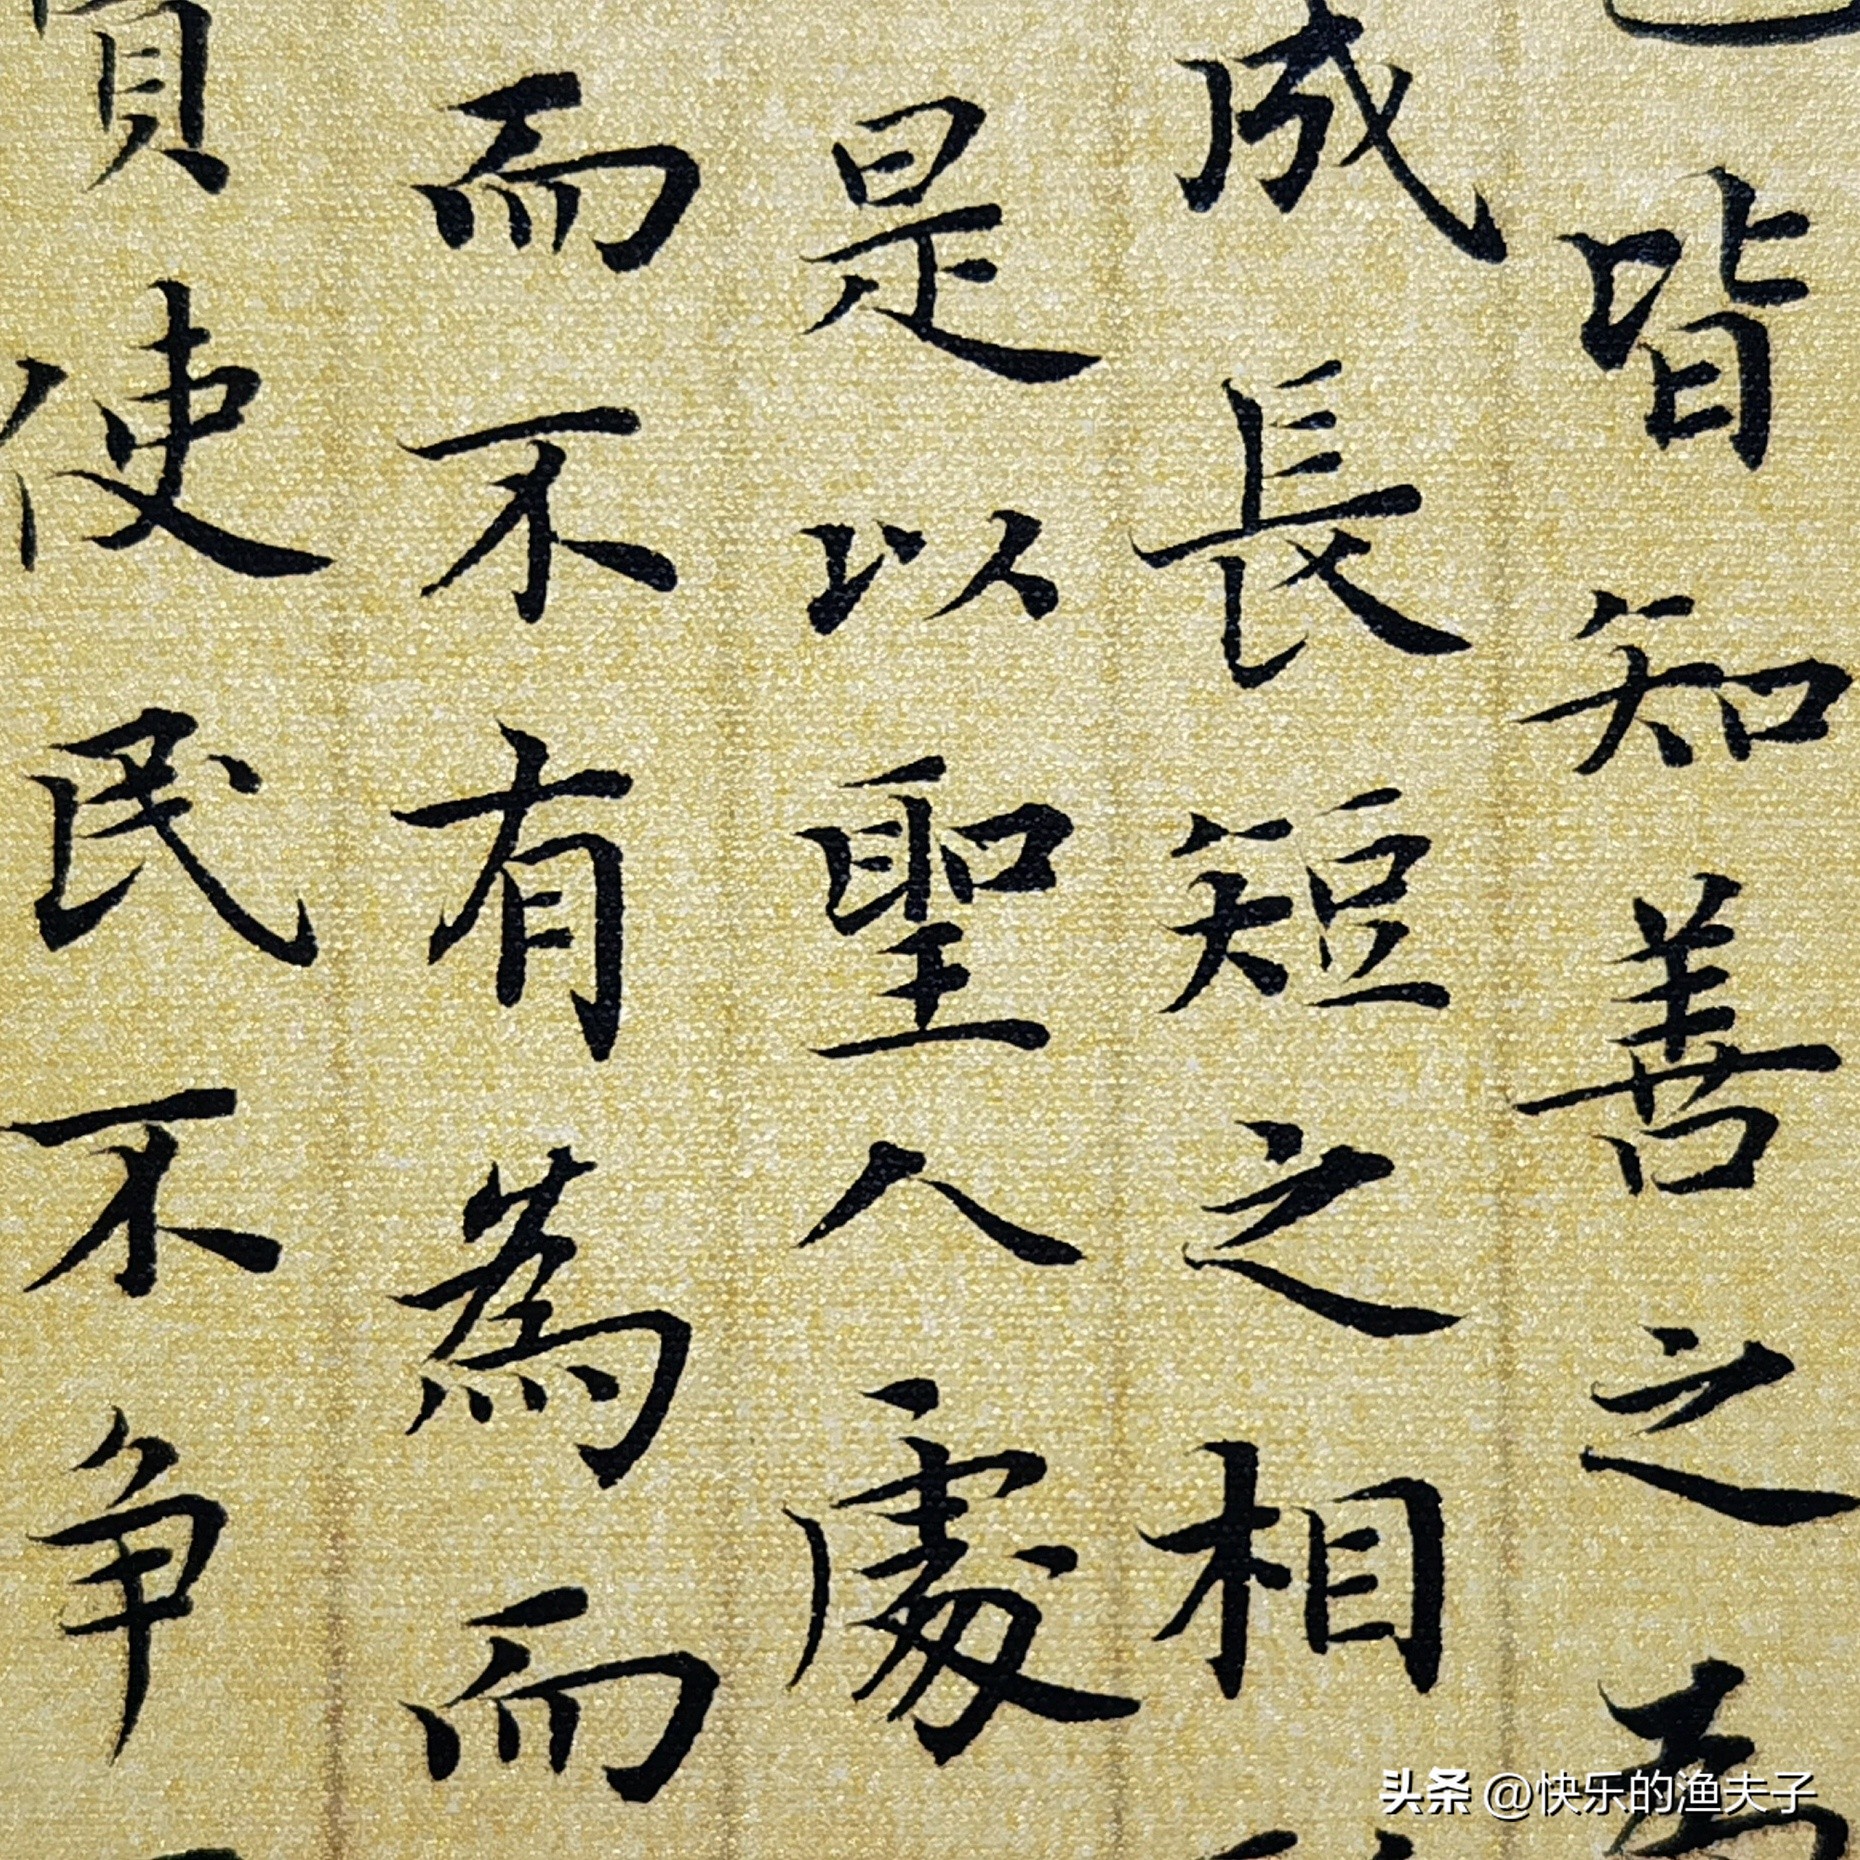 皆知善之為
成長短之相
是以聖人處
而不有為而
使民不争
头条 @快乐的渔夫子